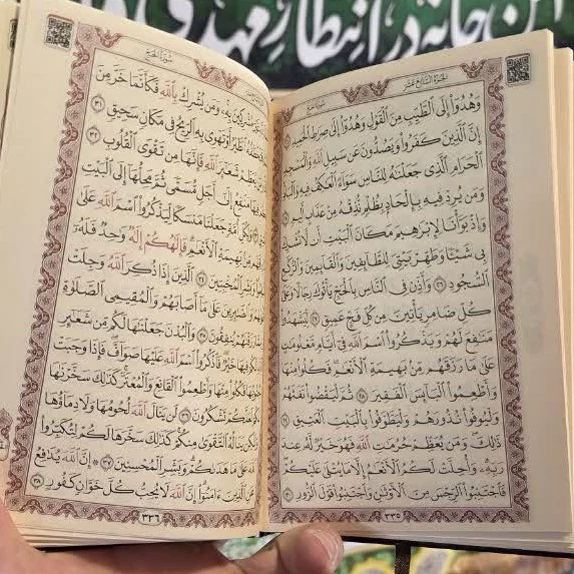 این خانه در انتظار مهدی
الجزء السابع عشر
وَهُدُوا إِلَى الطَّيِّبِ مِنَ الْقَوْلِ وَهُدُوا إِلَى صِرَاطِ الْحَمِيدِ ﴿٢٤﴾
إِنَّ الَّذِينَ كَفَرُوا وَيَصُدُّونَ عَن سَبِيلِ اللَّهِ وَالْمَسْجِدِ
الْحَرَامِ الَّذِي جَعَلْنَاهُ لِلنَّاسِ سَوَاءً الْعَاكِفُ فِيهِ وَالْبَادِ
وَمَن يُرِدْ فِيهِ بِإِلْحَادٍ بِظُلْمٍ نُّذِقْهُ مِنْ عَذَابٍ أَلِيمٍ ﴿٢٥﴾
وَإِذْ بَوَّأْنَا لِإِبْرَاهِيمَ مَكَانَ الْبَيْتِ أَن لَّا تُشْرِكْ
بِي شَيْئًا وَطَهِّرْ بَيْتِيَ لِلطَّائِفِينَ وَالْقَائِمِينَ وَالرُّكَّعِ
السُّجُودِ ﴿٢٦﴾ وَأَذِّن فِي النَّاسِ بِالْحَجِّ يَأْتُوكَ رِجَالًا وَعَلَى
كُلِّ ضَامِرٍ يَأْتِينَ مِن كُلِّ فَجٍّ عَمِيقٍ ﴿٢٧﴾ لِّيَشْهَدُوا
مَنَافِعَ لَهُمْ وَيَذْكُرُوا اسْمَ اللَّهِ فِي أَيَّامٍ مَّعْلُومَاتٍ
عَلَى مَا رَزَقَهُم مِّن بَهِيمَةِ الْأَنْعَامِ فَكُلُوا مِنْهَا
وَأَطْعِمُوا الْبَائِسَ الْفَقِيرَ ﴿٢٨﴾ ثُمَّ لْيَقْضُوا تَفَثَهُمْ
وَلْيُوفُوا نُذُورَهُمْ وَلْيَطَّوَّفُوا بِالْبَيْتِ الْعَتِيقِ ﴿٢٩﴾
ذَلِكَ وَمَن يُعَظِّمْ حُرُمَاتِ اللَّهِ فَهُوَ خَيْرٌ لَّهُ عِندَ
رَبِّهِ وَأُحِلَّتْ لَكُمُ الْأَنْعَامُ إِلَّا مَا يُتْلَى عَلَيْكُمْ
فَاجْتَنِبُوا الرِّجْسَ مِنَ الْأَوْثَانِ وَاجْتَنِبُوا قَوْلَ الزُّورِ ﴿٣٠﴾
٣٣٥
سورة الحج
مُشْرِكِينَ بِهِ وَمَن يُشْرِكْ بِاللَّهِ فَكَأَنَّمَا خَرَّ مِنَ
الطَّيْرُ أَوْ تَهْوِي بِهِ الرِّيحُ فِي مَكَانٍ سَحِيقٍ ﴿٣١﴾
وَمَن يُعَظِّمْ شَعَائِرَ اللَّهِ فَإِنَّهَا مِن تَقْوَى الْقُلُوبِ ﴿٣٢﴾
مَنَافِعُ إِلَى أَجَلٍ مُّسَمًّى ثُمَّ مَحِلُّهَا إِلَى الْبَيْتِ
وَلِكُلِّ أُمَّةٍ جَعَلْنَا مَنسَكًا لِّيَذْكُرُوا اسْمَ اللَّهِ عَلَى
مِّن بَهِيمَةِ الْأَنْعَامِ فَإِلَهُكُمْ إِلَهٌ وَاحِدٌ فَلَهُ
وَبَشِّرِ الْمُخْبِتِينَ ﴿٣٤﴾ الَّذِينَ إِذَا ذُكِرَ اللَّهُ وَجِلَتْ
وَالصَّابِرِينَ عَلَى مَا أَصَابَهُمْ وَالْمُقِيمِي الصَّلَاةِ
يُنفِقُونَ ﴿٣٥﴾ وَالْبُدْنَ جَعَلْنَاهَا لَكُم مِّن شَعَائِرِ
خَيْرٌ فَاذْكُرُوا اسْمَ اللَّهِ عَلَيْهَا صَوَافَّ فَإِذَا وَجَبَتْ
فَكُلُوا مِنْهَا وَأَطْعِمُوا الْقَانِعَ وَالْمُعْتَرَّ كَذَلِكَ سَخَّرْنَاهَا
لَعَلَّكُمْ تَشْكُرُونَ ﴿٣٦﴾ لَن يَنَالَ اللَّهَ لُحُومُهَا وَلَا دِمَاؤُهَا
يَنَالُهُ التَّقْوَى مِنكُمْ كَذَلِكَ سَخَّرَهَا لَكُمْ لِتُكَبِّرُوا
عَلَى مَا هَدَاكُمْ وَبَشِّرِ الْمُحْسِنِينَ ﴿٣٧﴾ إِنَّ اللَّهَ يُدَافِعُ
عَنِ الَّذِينَ آمَنُوا إِنَّ اللَّهَ لَا يُحِبُّ كُلَّ خَوَّانٍ كَفُورٍ ﴿٣٨﴾
٣٣٦